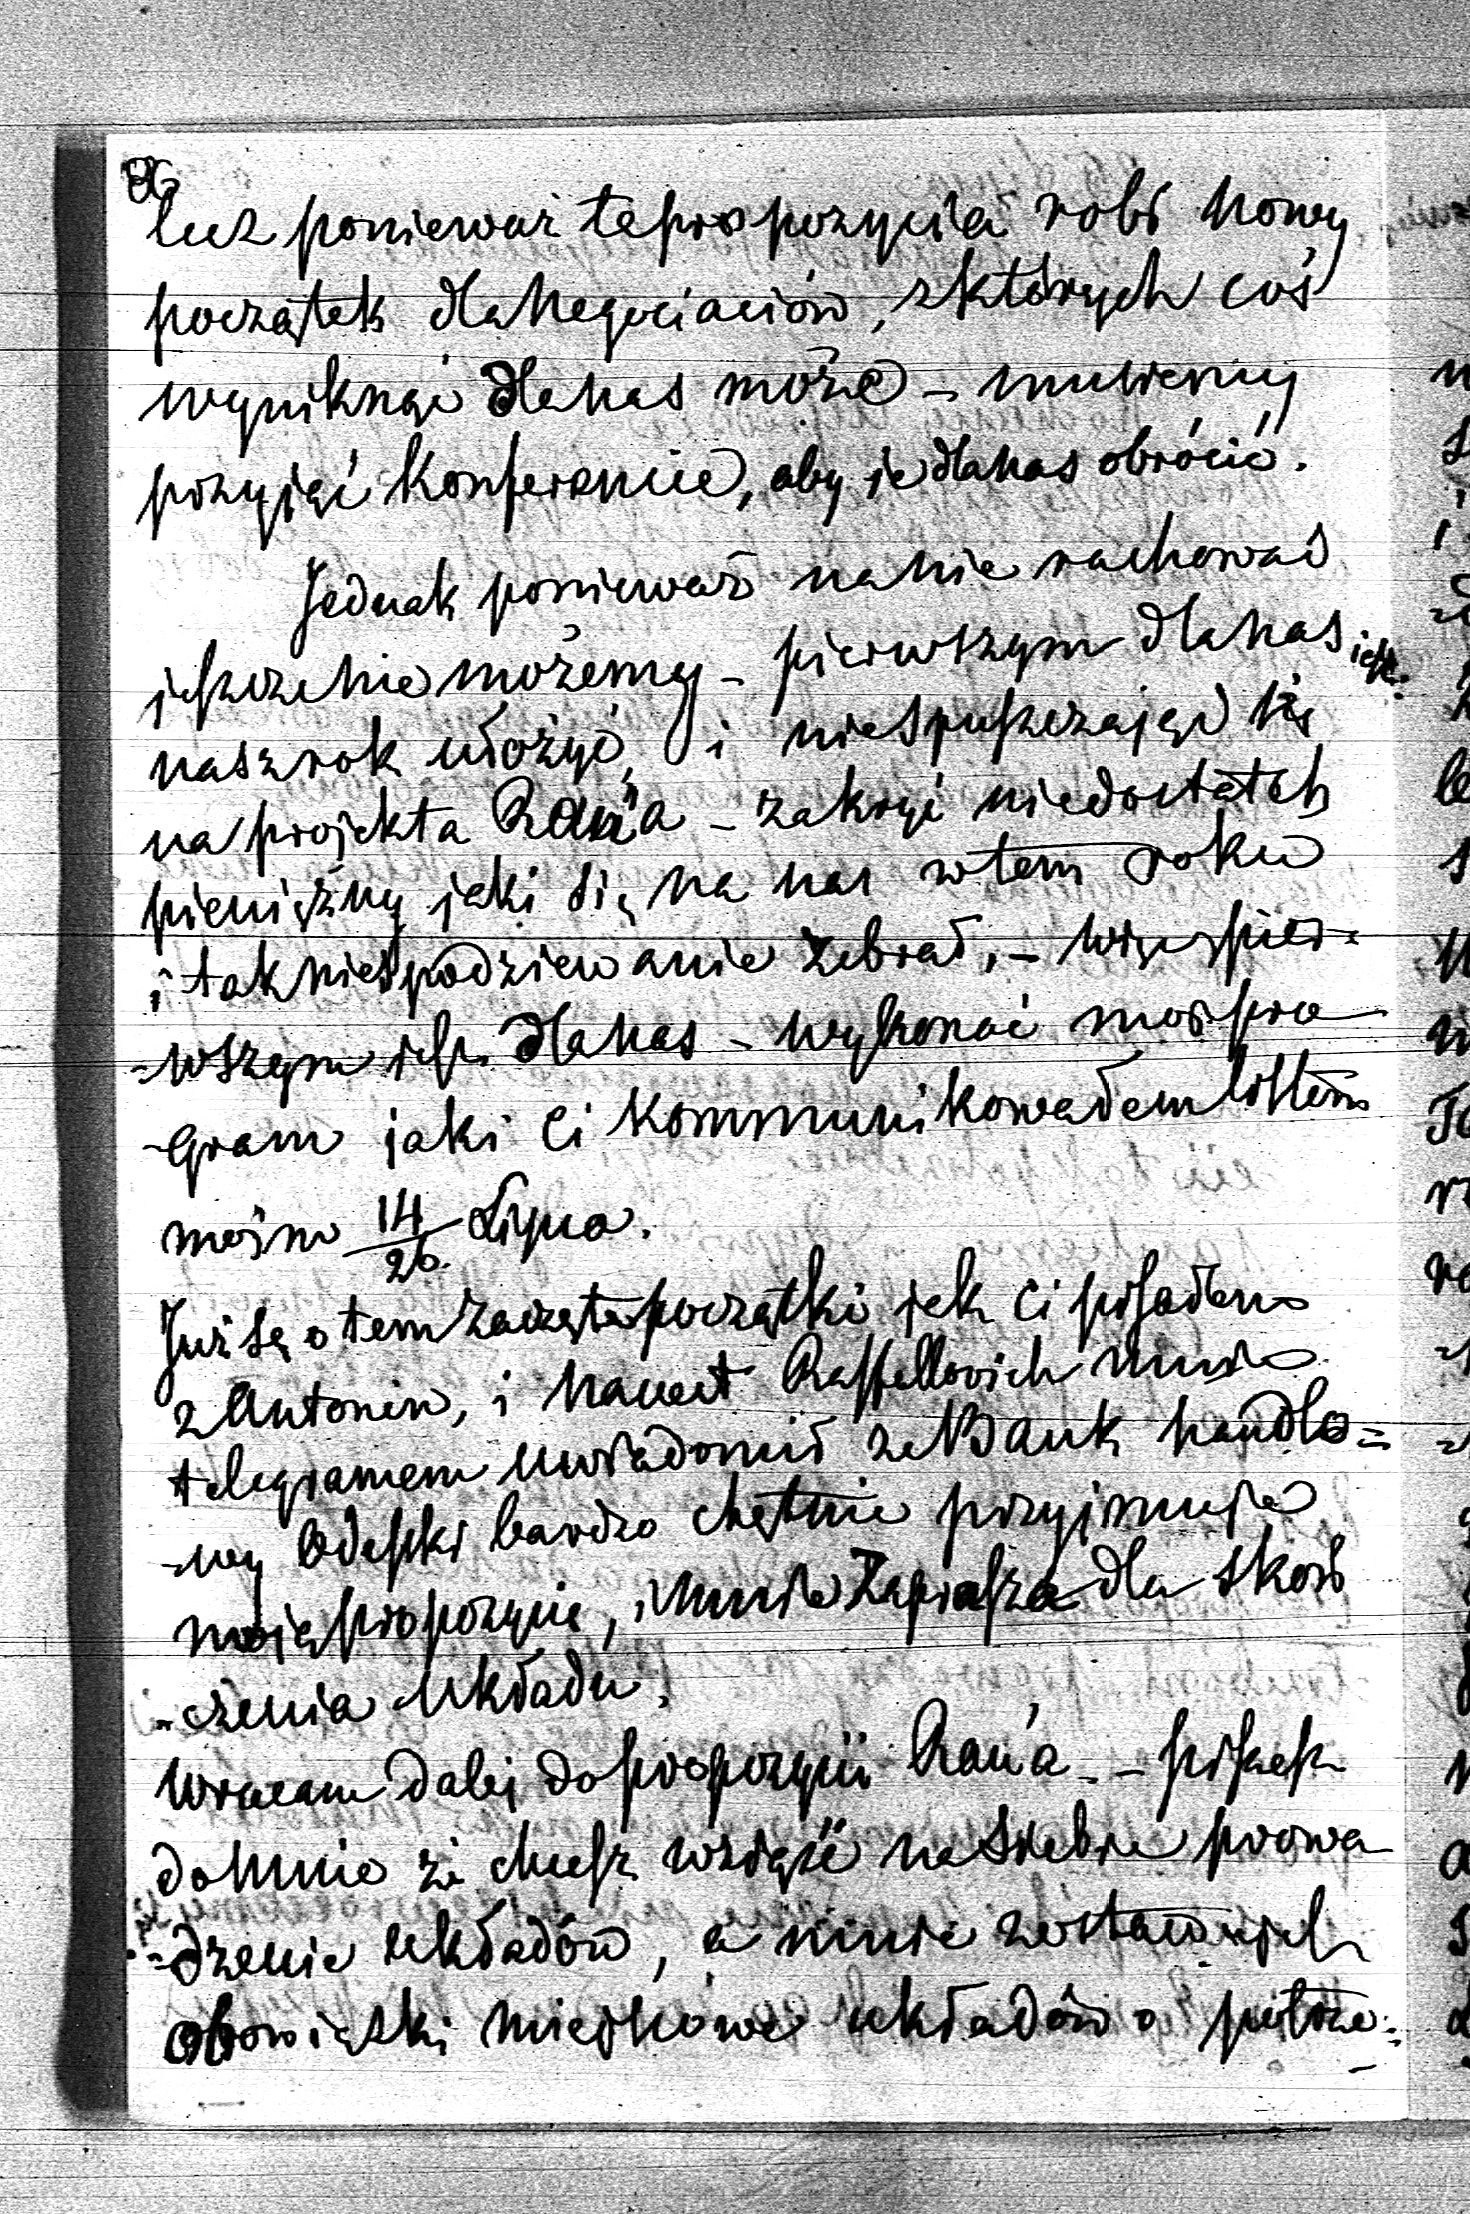 lecz ponieważ ta propozycia robi nowy
początek dla negociaciów, z których coś
wyniknąć dla nas może – musiemy
przyjąć Konferencie, aby je dla nas obrócić.
Jednak ponieważ na nie rachować
jeszcze nie możemy – pierwszym dla nas jest:
nasz rok ułożyć, i nie spuszczając się
na projekta Rau'a – zakryć niedostatek
pieniężny jaki się na nas w tem roku
i tak niespodziewanie zebrał, – więc pier-
-wszym jest dla nas – wykonać mój pro
-gram jaki Ci kommunikowałem listem
mojm 14/26. Lipca.
Już są o tem zaczęte początki jak Ci pisałem
z Antonin, i nawet Raffallovich mnie
telegramem uwiadomił że Bank handlo=
-wy Odeski bardzo chętnie przyjmuje
moję propozycie, i mnie zaprasza dla skoń
-czenia układu.
Wracam dalej do propozycii Rau'a – piszesz
do mnie że chcesz wziąść na siebie prowa
-dzenie układów, a mnie zostawujesz
obowiązki miejscowe układów o potrze=